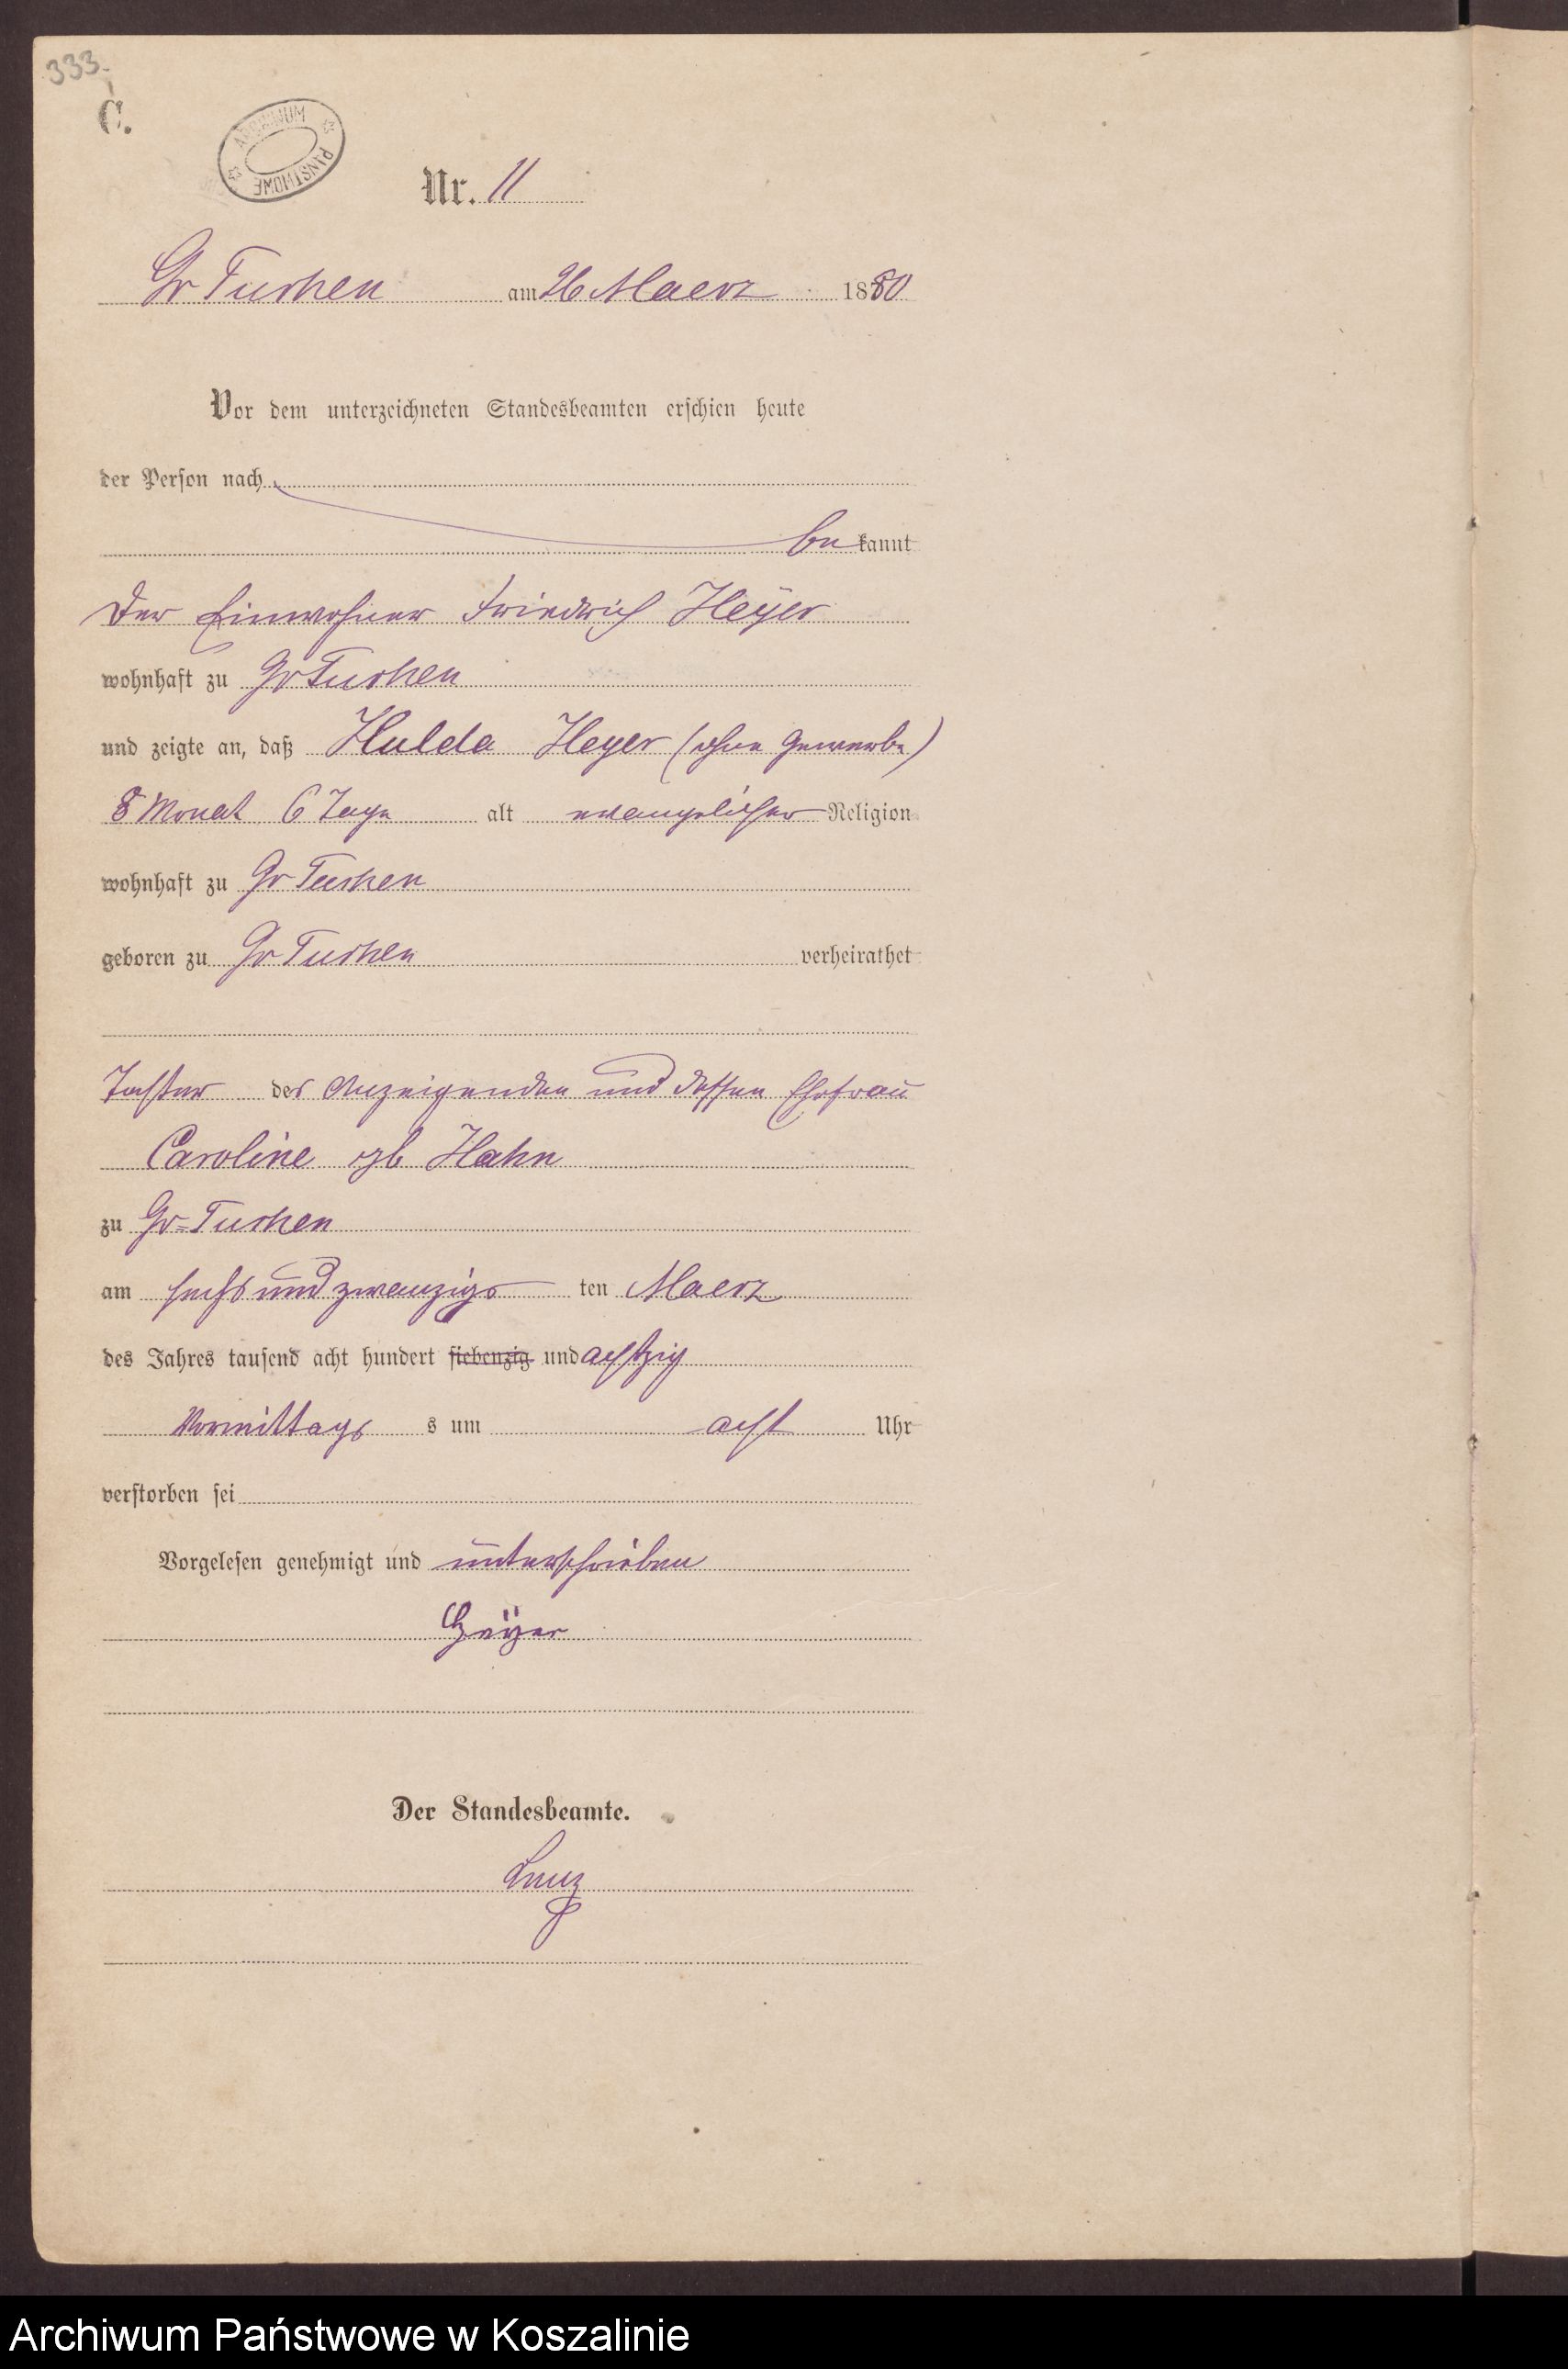 333.
C.
ARCHIWUM PAŃSTWOWE
Nr. 11
Gr Tuchen am 26 Maerz 1880
Vor dem unterzeichneten Standesbeamten erschien heute
der Person nach
bekannt
Der Einwohner Friedrich Heÿer
wohnhaft zu Gr Tuchen
und zeigte an, daß Hulda Heyer (ohne Gewerbe)
8 Monat 6 Tage alt evangelischer Religion
wohnhaft zu Gr Tuchen
geboren zu Gr Tuchen verheirathet
Tochter des Anzeigenden und dessen Ehefrau
Caroline gb Hahn
zu Gr=Tuchen
am sechs und zwanzigs ten Maerz
des Jahres tausend acht hundert siebenzig und achtzig
Vormittags s um acht Uhr
verstorben sei
Vorgelesen genehmigt und unterschrieben
Heÿer
Der Standesbeamte.
Lenz
Archiwum Państwowe w Koszalinie